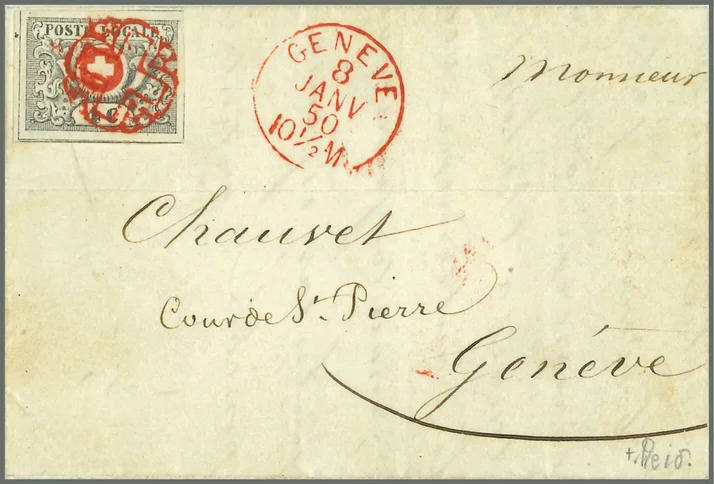 POSTE LOCALE
GENEVE
8
JANV
50
10½M
Monsieur
Chauvet
Cour de St. Pierre
Genéve